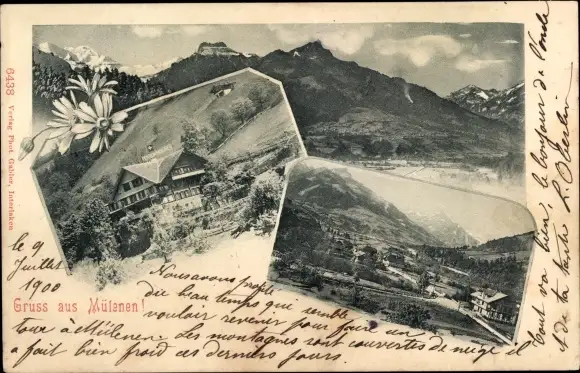 6438 Verlag Phot. Gabler, Interlaken
Gruss aus Mülenen!
le 9
Juillet
1900
Nous avons profité
du beau temps qui semble
vouloir revenir pour faire un
tour à Mülenen. Les montagnes sont couvertes de neige il
a fait bien froid ces derniers jours.
Tout va bien, le bonjour de l'oncle
et de ta tante L. Oberlin